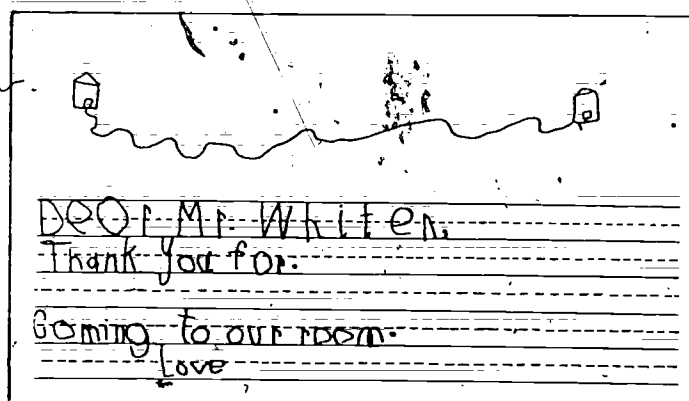 Dear Mr. Whiter,
Thank you for.
Coming to our room.
Love